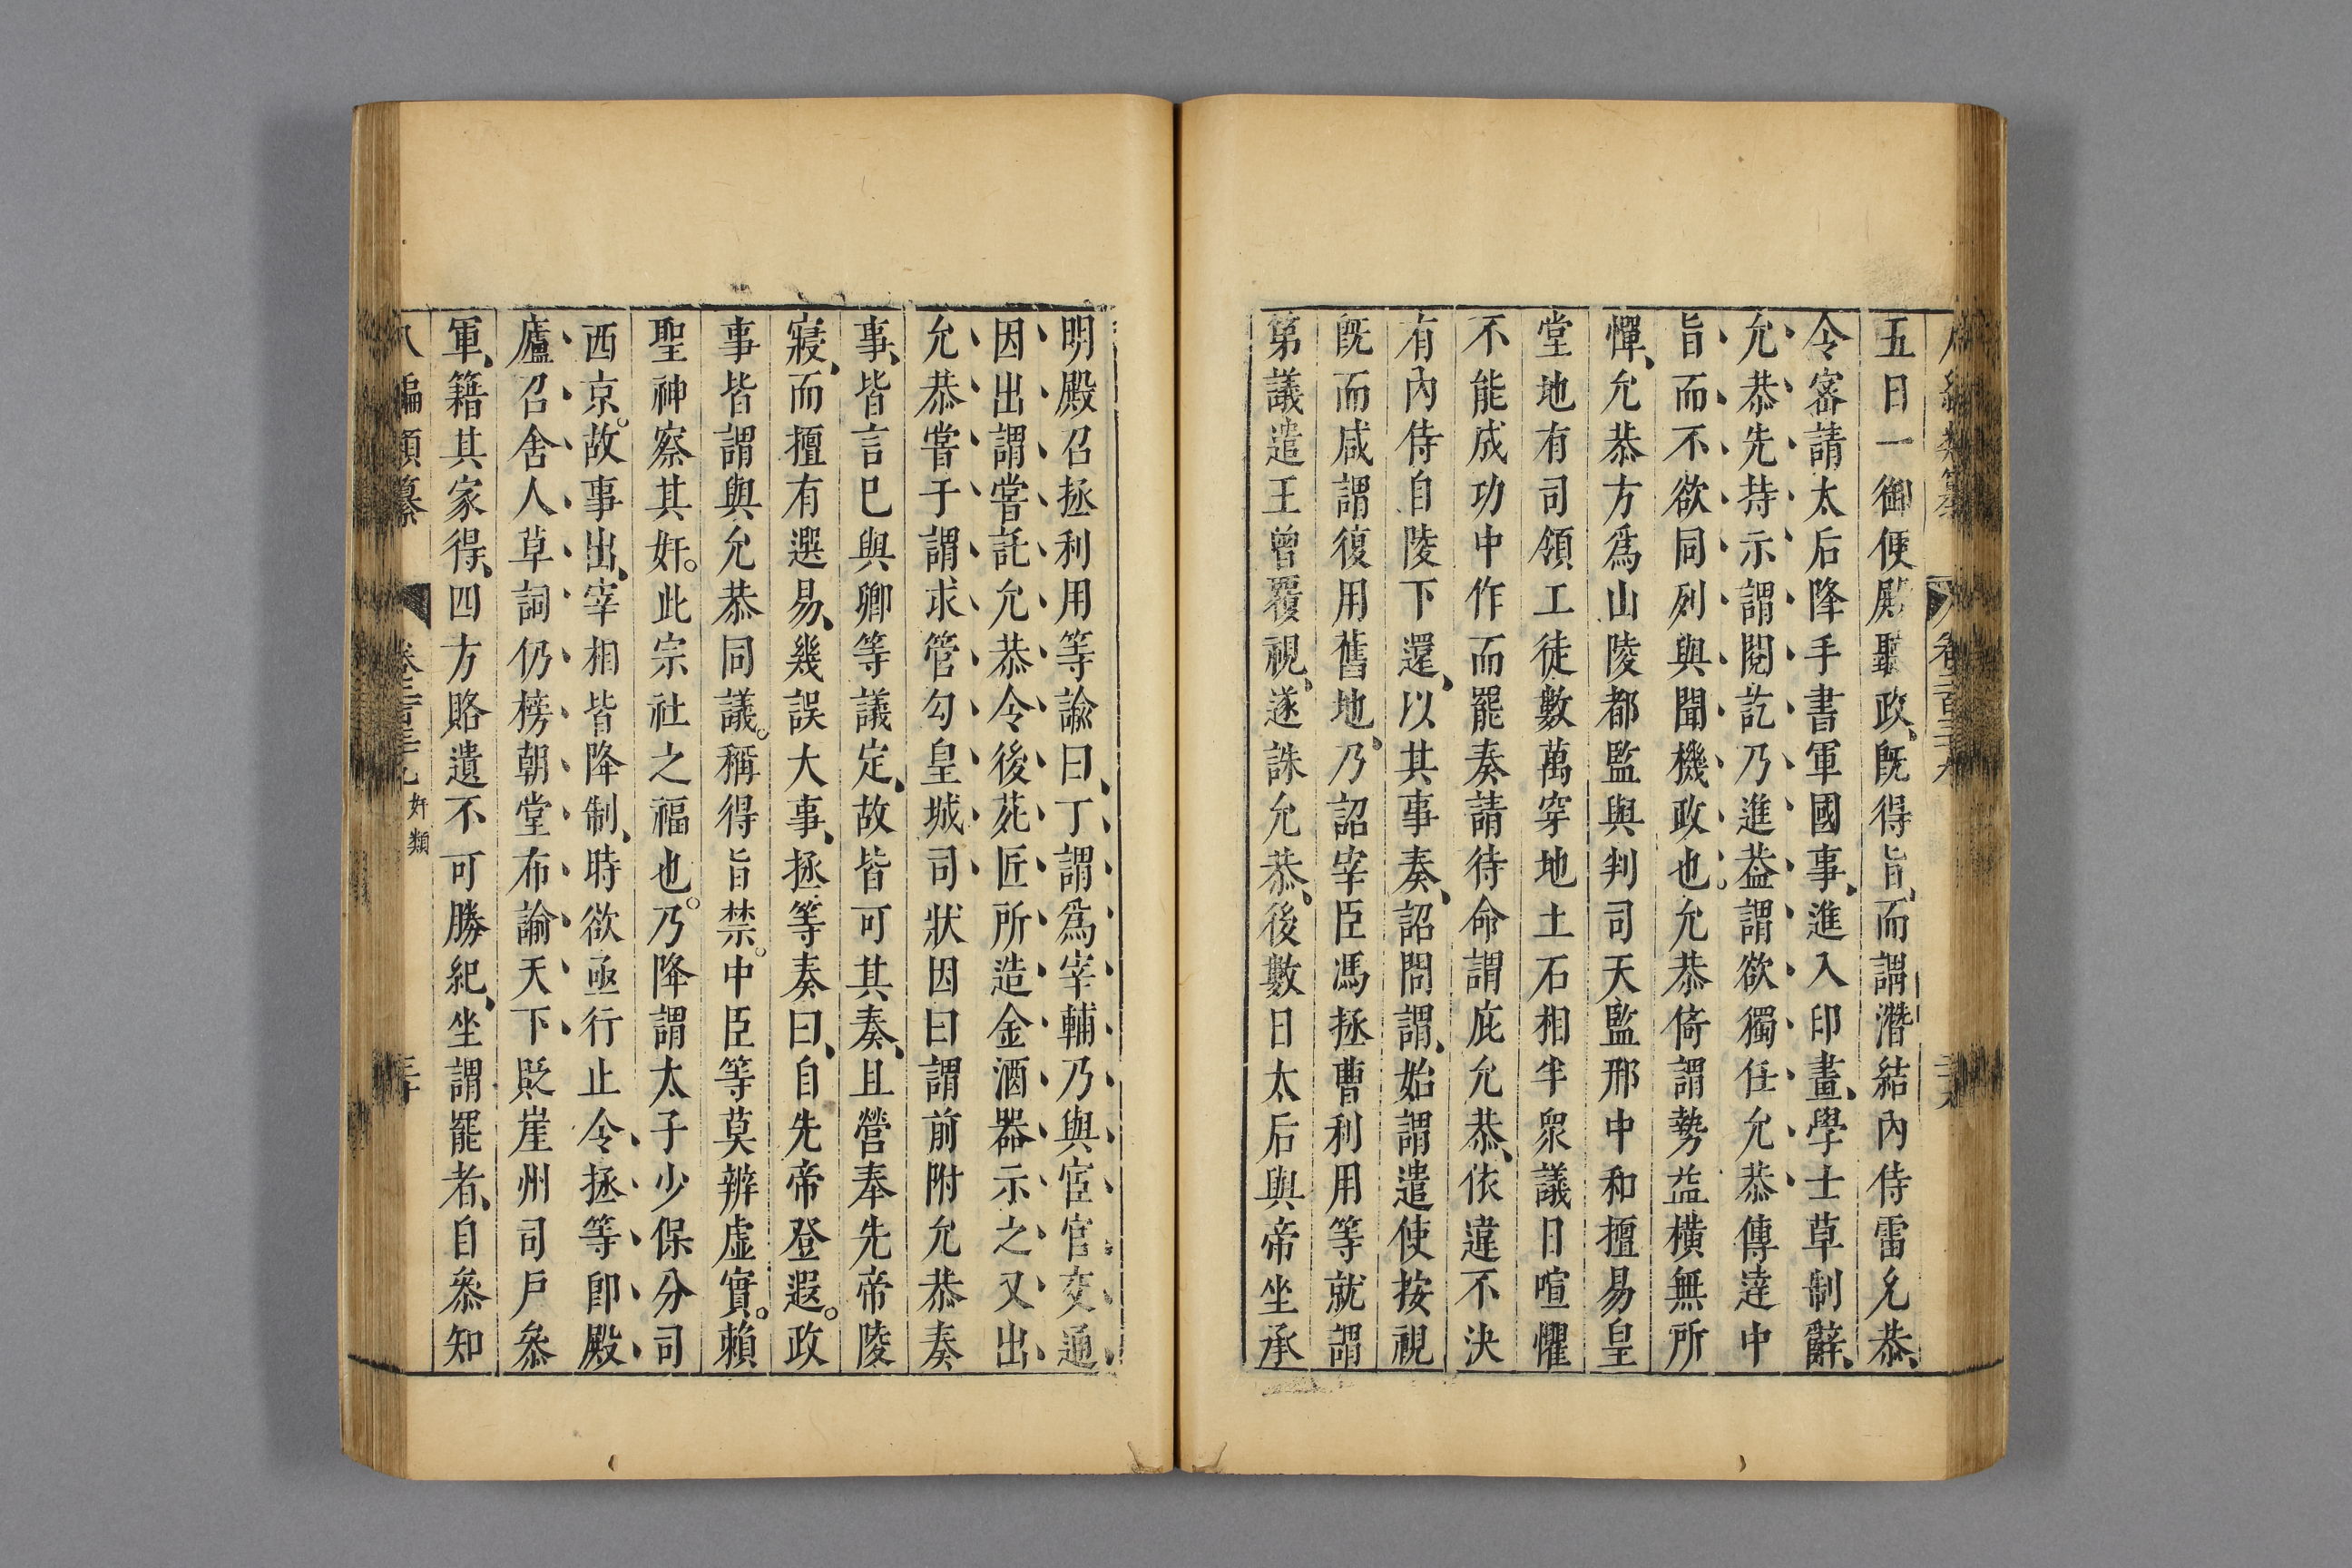 五日一御便殿聽政、旣得旨、而謂潛結內侍雷允恭、
令密請太后降手書軍國事、進入印畫、學士草制辭、
允恭先持示謂閱訖乃進葢謂欲獨任允恭傳達中
旨而不欲同列與聞機政也。允恭倚謂勢益橫無所
憚、允恭方爲山陵都監與判司天監邢中和擅易皇
堂地有司領工徒數萬穿地土石相半衆議日喧懼
不能成功中作而罷奏請待命謂庇允恭、依違不決
有內侍自陵下還、以其事奏、詔問謂、始謂遣使按視
旣而咸謂復用舊地、乃詔宰臣馮拯曹利用等就謂
第議遣王曾覆視、遂誅允恭、後數日太后與帝坐承
明殿召拯利用等諭曰、丁謂爲宰輔乃與宦官交通
因出謂嘗託允恭令後苑匠所造金酒器示之又出
允恭嘗于謂求管勾皇城司狀因曰謂前附允恭奏
事、皆言已與卿等議定、故皆可其奏、且營奉先帝陵
寢、而擅有遷易、幾誤大事、拯等奏曰、自先帝登遐。政
事皆謂與允恭同議。稱得旨禁。中臣等莫辨虛實。賴
聖神察其奸。此宗社之福也。乃降謂太子少保分司
西京。故事出、宰相皆降制、時欲亟行止令拯等卽殿
廬召舍人草詞仍榜朝堂布諭天下貶崖州司戶叅
軍、籍其家得、四方賂遺不可勝紀、坐謂罷者、自叅知
八編類纂 卷二百三十九 奸類 三十